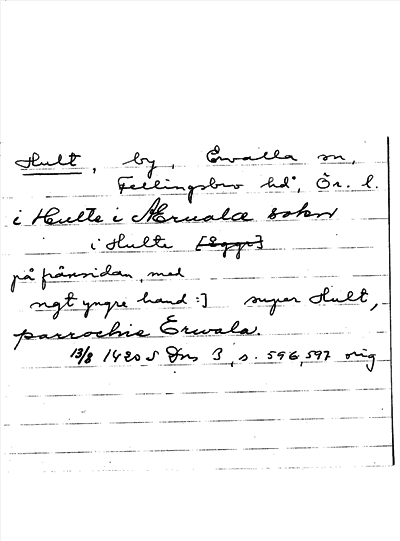 Hult, by, Ervalla sn,
Fellingsbro hd, Ör. l.
i Hulte i Æruala sokn
i Hulte [
på frånsidan, med
ngt yngre hand:] super Hult,
parrochie Erwala.
13/8 1420 S Dns 3, s. 596, 597 orig